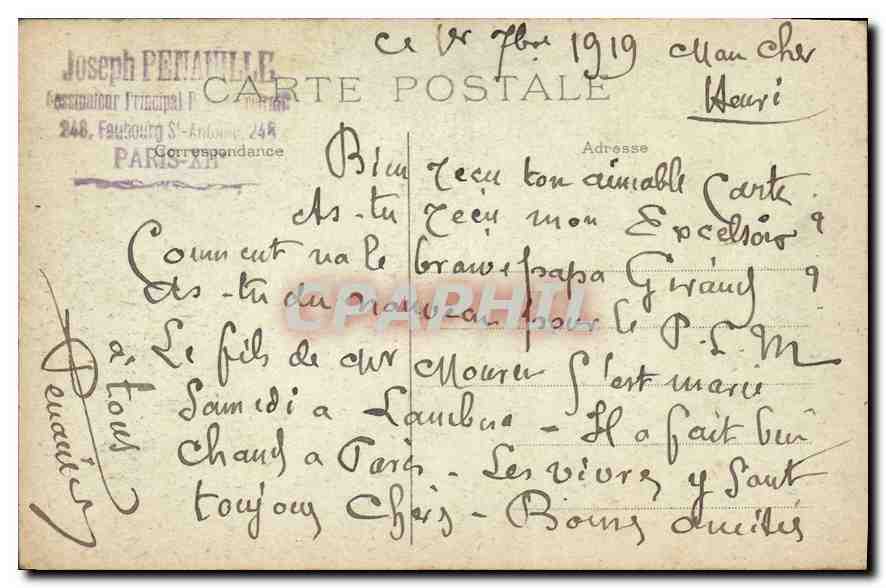 Ce 1er 7bre 1919 Mon Cher
Henri
Joseph PENAUILLE
Dessinateur Principal
248, Faubourg St-Antoine, 248
PARIS-XIIe
CARTE POSTALE
Correspondance
Adresse
Bien reçu ton aimable Carte.
As-tu reçu mon Excelsior ?
Comment va le brave papa Giraud ?
As-tu du nouveau pour le P.L.M
Le fils de Mr s'est marié
Samedi a - Il a fait bien
Chaud a Paris - Les vivres y sont
toujours Chers - Bonnes amitiés
à tous
Penauille
CPAPHIL